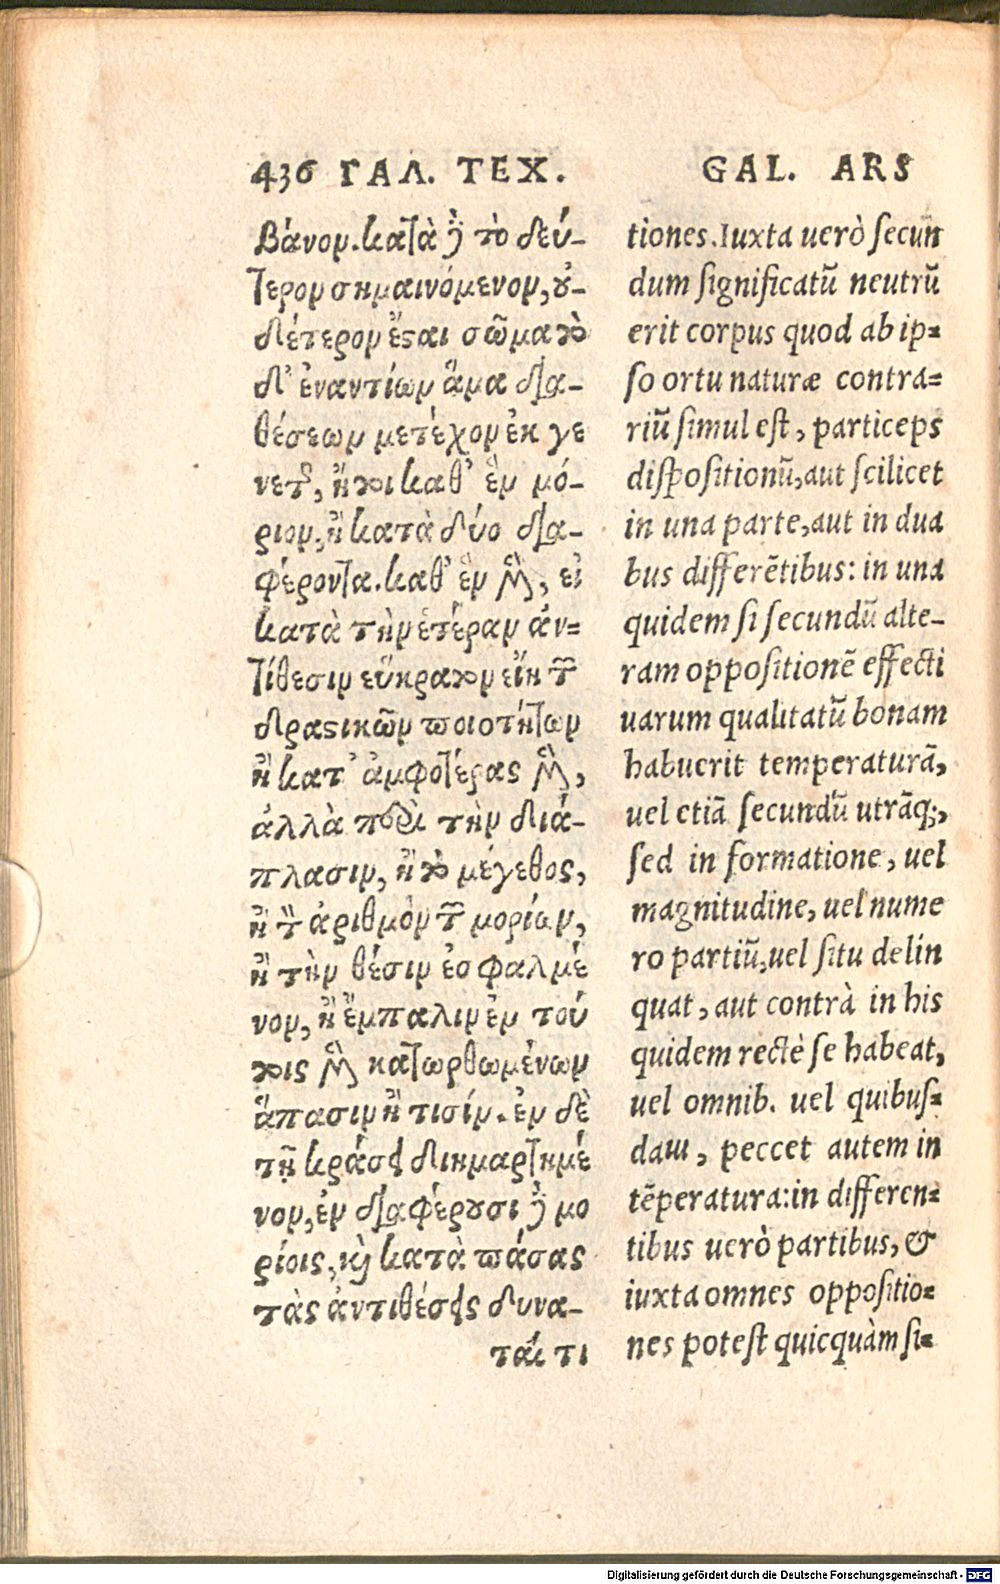 436 ΓΑΛ. ΤΕΧ.
βάνον. κατὰ δὲ τὸ δεύ-
τερον σημαινόμενον, οὐ-
δέτερον ἔσται σῶμα τὸ
δι' ἐναντίων ἅμα δια-
θέσεων μετέχον ἐκ γε
νετῆς, ἤτοι καθ' ἓν μό-
ριον, ἢ κατὰ δύο δια-
φέροντα. καθ' ἓν μὲν, εἰ
κατὰ τὴν ἑτέραν ἀν=
τίθεσιν εὔκρατον εἴη τῶν
δραστικῶν ποιοτήτων
ἢ κατ' ἀμφοτέρας μὲν,
ἀλλὰ περὶ τὴν διά-
πλασιν, ἢ τὸ μέγεθος,
ἢ τὸν ἀριθμὸν τῶν μορίων,
ἢ τὴν θέσιν ἐσφαλμέ
νον, ἢ ἔμπαλιν ἐν τού
τοις μὲν κατωρθωμένων
ἅπασιν ἢ τισίν. ἐν δὲ
τῇ κράσει διημαρτημέ
νον, ἐν διαφέρουσι δὲ μο
ρίοις, καὶ κατὰ πάσας
τὰς ἀντιθέσεις δυνα-
ταί τι
GAL. ARS
tiones. Iuxta uerò secun
dum significatũ neutrũ
erit corpus quod ab ip=
so ortu naturæ contra=
riũ simul est, particeps
dispositionũ, aut scilicet
in una parte, aut in dua
bus differẽtibus: in una
quidem si secundũ alte-
ram oppositionẽ effecti
uarum qualitatũ bonam
habuerit temperaturã,
uel etiã secundũ utrãq;,
sed in formatione, uel
magnitudine, uel nume
ro partiũ, uel situ delin
quat, aut contrà in his
quidem rectè se habeat,
uel omnib. uel quibus=
dam, peccet autem in
tẽperatura: in differen=
tibus uerò partibus, &
iuxta omnes oppositio=
nes potest quicquàm si=
Digitalisierung gefördert durch die Deutsche Forschungsgemeinschaft - DFG